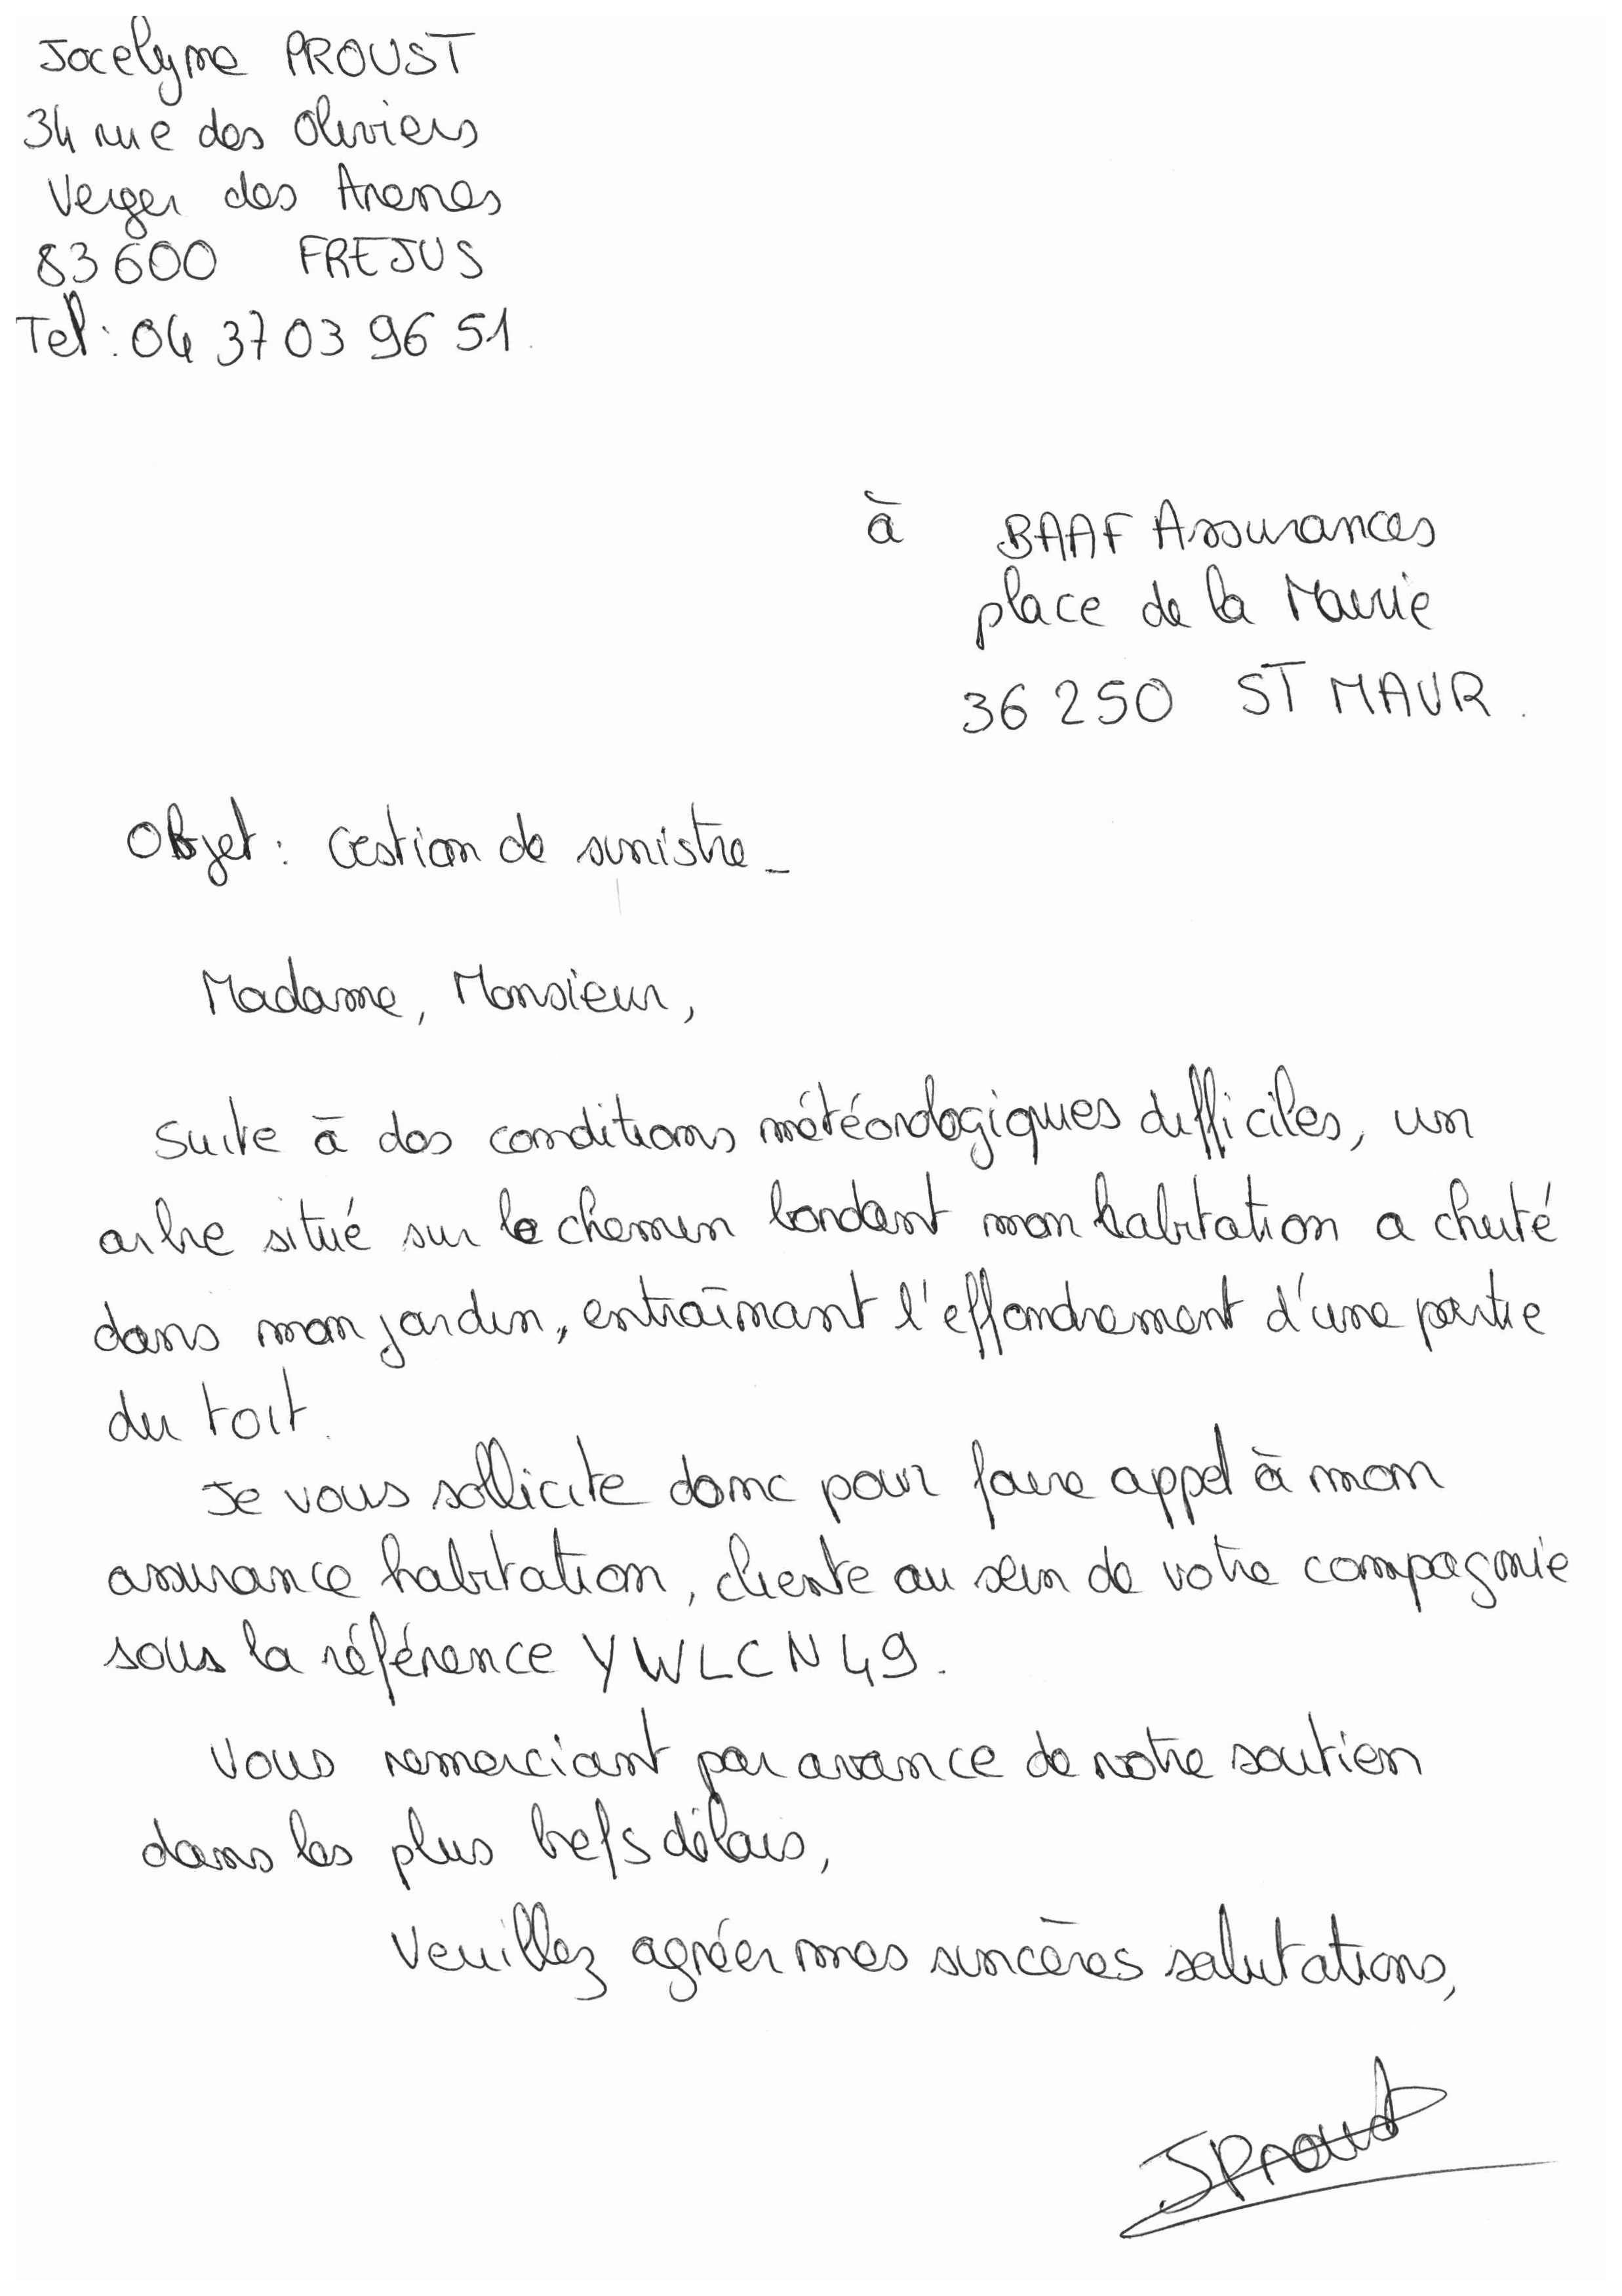 Jocelyne PROUST
34 rue des Oliviers
Verger des Arenes
83600 FREJUS
Tel : 04 37 03 96 51.
à BAAF Assurances
place de la Mairie
36250 ST MAUR.
Objet : Gestion de sinistre_
Madame, Monsieur,
Suite à des conditions météorologiques difficiles, un
arbre situé sur le chemin bordant mon habitation a chuté
dans mon jardin, entraînant l'effondrement d'une partie
du toit.
Je vous sollicite donc pour faire appel à mon
assurance habitation, cliente au sein de votre compagnie
sous la référence YWLCN49.
Vous remerciant par avance de votre soutien
dans les plus brefs délais,
Veuillez agréer mes sincères salutations,
JProust